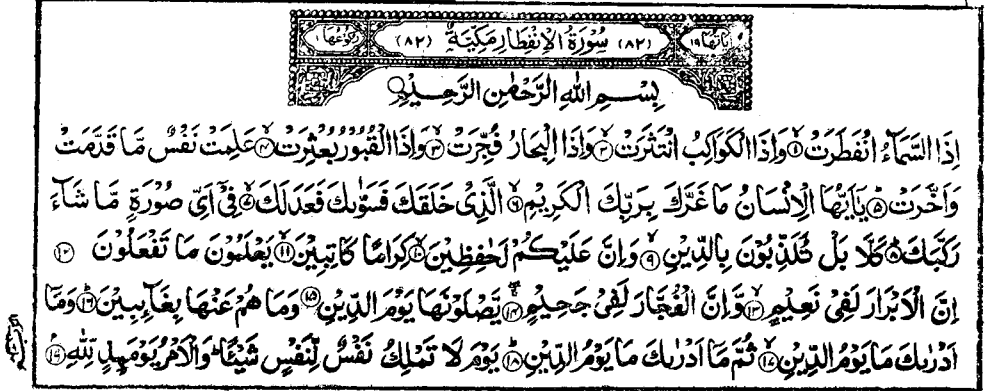 اٰيَاتُهَا ١٩ (٨٢) سُوْرَةُ الْاِنْفِطَارِ مَكِّيَّةٌ (٨٢) رُكُوْعُهَا ١
بِسْمِ اللّٰهِ الرَّحْمٰنِ الرَّحِيْمِ
اِذَا السَّمَآءُ انْفَطَرَتْ ۙ﴿١﴾ وَاِذَا الْكَوَاكِبُ انْتَثَرَتْ ۙ﴿٢﴾ وَاِذَا الْبِحَارُ فُجِّرَتْ ۙ﴿٣﴾ وَاِذَا الْقُبُوْرُ بُعْثِرَتْ ۙ﴿٤﴾ عَلِمَتْ نَفْسٌ مَّا قَدَّمَتْ
وَاَخَّرَتْ ؕ﴿٥﴾ يٰۤاَيُّهَا الْاِنْسَانُ مَا غَرَّكَ بِرَبِّكَ الْكَرِيْمِ ۙ﴿٦﴾ الَّذِيْ خَلَقَكَ فَسَوّٰىكَ فَعَدَلَكَ ۙ﴿٧﴾ فِيْۤ اَيِّ صُوْرَةٍ مَّا شَآءَ
رَكَّبَكَ ؕ﴿٨﴾ كَلَّا بَلْ تُكَذِّبُوْنَ بِالدِّيْنِ ۙ﴿٩﴾ وَاِنَّ عَلَيْكُمْ لَحٰفِظِيْنَ ۙ﴿١٠﴾ كِرَامًا كَاتِبِيْنَ ۙ﴿١١﴾ يَعْلَمُوْنَ مَا تَفْعَلُوْنَ ﴿١٢﴾
اِنَّ الْاَبْرَارَ لَفِيْ نَعِيْمٍ ۚ﴿١٣﴾ وَّاِنَّ الْفُجَّارَ لَفِيْ جَحِيْمٍ ۚۖ﴿١٤﴾ يَّصْلَوْنَهَا يَوْمَ الدِّيْنِ ﴿١٥﴾ وَمَا هُمْ عَنْهَا بِغَآئِبِيْنَ ؕ﴿١٦﴾ وَمَاۤ
اَدْرٰىكَ مَا يَوْمُ الدِّيْنِ ۙ﴿١٧﴾ ثُمَّ مَاۤ اَدْرٰىكَ مَا يَوْمُ الدِّيْنِ ؕ﴿١٨﴾ يَوْمَ لَا تَمْلِكُ نَفْسٌ لِّنَفْسٍ شَيْئًا ؕ وَالْاَمْرُ يَوْمَئِذٍ لِّلّٰهِ ﴿١٩﴾